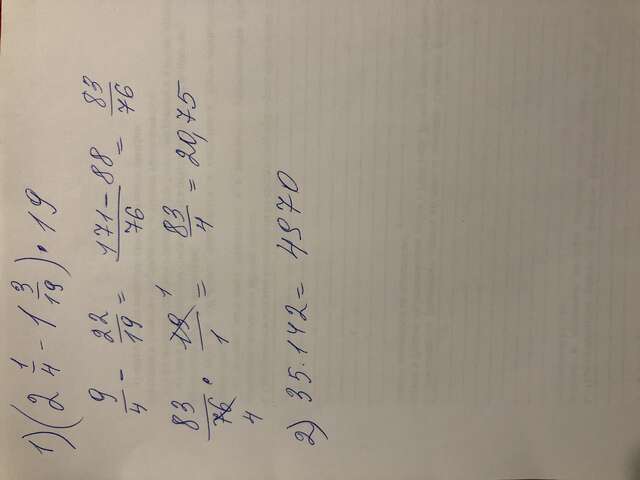 1) (2 1/4 - 1 3/19) · 19
9/4 - 22/19 = 171-88/76 = 83/76
83/76 4 · 19/1 1 = 83/4 = 20,75
2) 35·142 = 4970